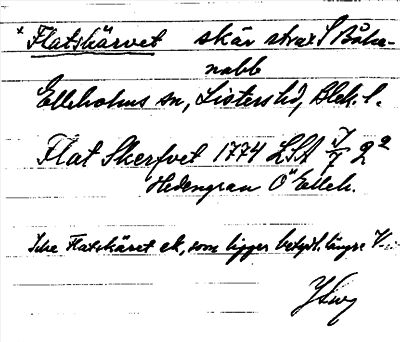 × Flatskärvet skär strax S Båka-
nabb
Elleholms sn, Listers hd, Blek. l.
Flat Skerfvet 1774 LSA J/7 2²
Hedengran Ö Elleh.
Icke Flatskäret ek, som ligger betydl. längre V.